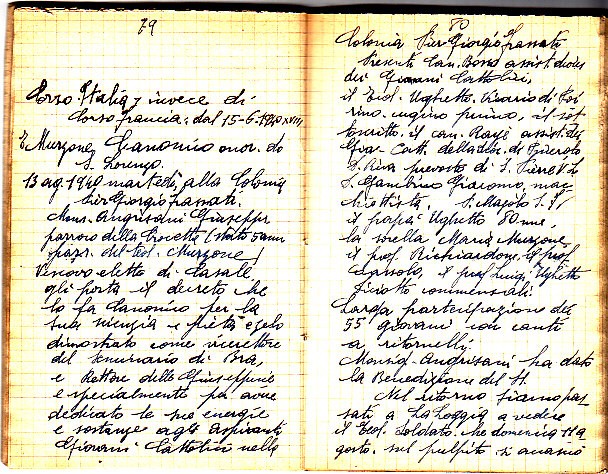 79
Corso Italia, invece di
Corso francia, dal 15-6.1940 XVIII
T. Murzone, Canonico onor. do
S. Lorenzo.
13 ag. 1940 martedì, alla Colonia
Pier Giorgio Frassati.
Mons. Angrisani Giuseppe
parroco della Crocetta (stato 5 anni
del Teol. Murzone)
Vescovo eletto di Casale
gli porta il decreto che
lo fa Canonico per la
sua scienza e pietà e zelo
dimostrato come vicerettore
del Seminario di Bra,
e Rettore delle Giuseppine
e specialmente per avere
dedicato le sue energie
e sostanze agli aspiranti
Giovani Cattolici nella
80
Colonia Pier Giorgio Frassati
Presenti Can. Bosso assist. dioces
dei Giovani Cattolici,
il Teol. Ughetto, Vicario di Poi
rino, cugino primo, il sot
toscritto, il can. assist. della
Giov. Catt. della dioc. di Pinerolo
S. Riva prevosto di S. Pietro V. L.
S. Gambino Giacomo, mac
chiettista,
il papà Ughetto 80 enne,
la sorella Maria Murzone,
il prof. Richiardone, il prof
il prof Luigi Ughetto
commensali.
Larga partecipazione dei
55 giovani con canti
a ritornelli.
Monsig. Angrisani ha dato
la Benedizione del SS.
Nel ritorno siamo pas
sati a La Loggia a vedere
il Teol. Soldato, che domenica 11 a
gosto, sul pulpito si